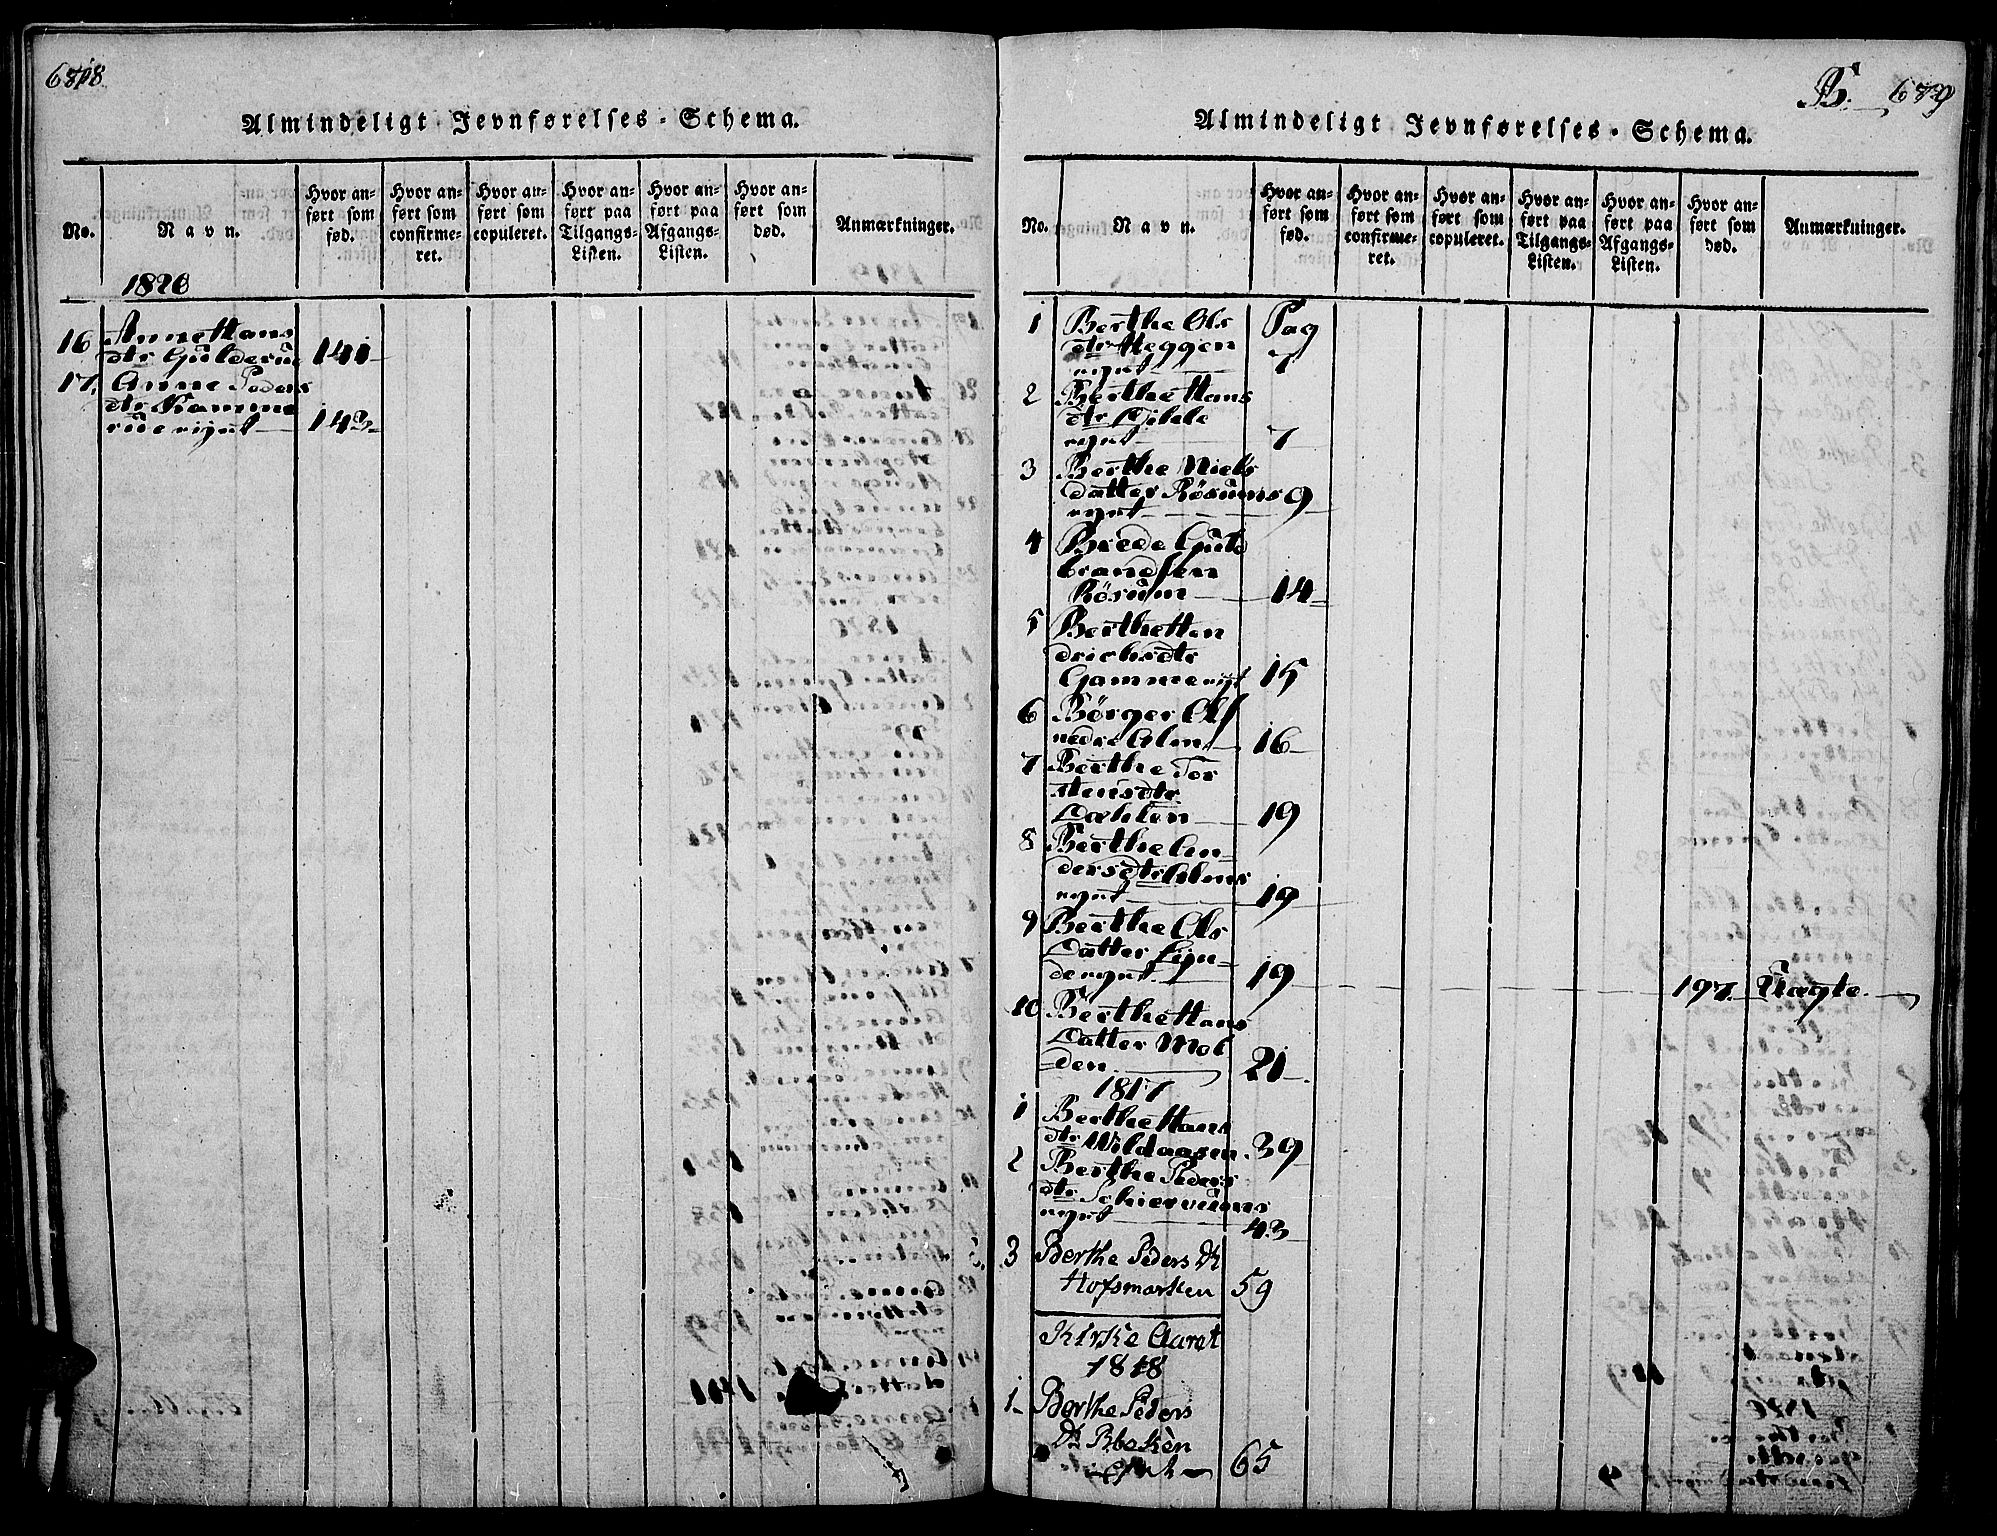 Almindeligt Jevnførelses-Schema.
No.
Navn.
Hvor an-
ført som
fød.
Hvor an-
ført som
confirme-
ret.
Hvor an-
ført som
copuleret.
Hvor an-
ført paa
Tilgangs-
Listen.
Hvor an-
ført paa
Afgangs-
Listen.
Hvor an-
ført som
død.
Anmærkninger.
1820
16 Anne Hans
dtr Gulderud 141
17. Anne Peders
dtr Ramme
rudeignt 143
B. 679
Almindeligt Jevnførelses-Schema.
No.
Navn.
Hvor an-
ført som
fød.
Hvor an-
ført som
confirme-
ret.
Hvor an-
ført som
copuleret.
Hvor an-
ført paa
Tilgangs-
Listen.
Hvor an-
ført paa
Afgangs-
Listen.
Hvor an-
ført som
død.
Anmærkninger.
1 Berthe Ols Pag
dtr Heggen
eignt 7
2 Berthe Hans
dtr
eignt 7
3 Berthe Niels
datter Rösums 9
eignt
4 Brede Guld
brandsen
Rösum 14
5 Berthe Hen
drichsdtr
Gamme eigt 15
6 Börger Ols
nedre Alm 16
7 Berthe Tor
stensdtr
Dahlen 19
8 Berthe An-
dersdtr Alms
eignt 19
9 Berthe Ols
Datter Lun-
deeignt 19 197. Tragte
10 Berthe Hans
Datter Mol
den 21
1817
1 Berthe Hans
dtr Vildaasen 39
2 Berthe Peders
dtr Schierveums
eignt 43
3 Berthe Peders Dtr
Hofsmarken 59
Kirke Aaret
1818
1 Berthe Peders
Dtr Bakken
65